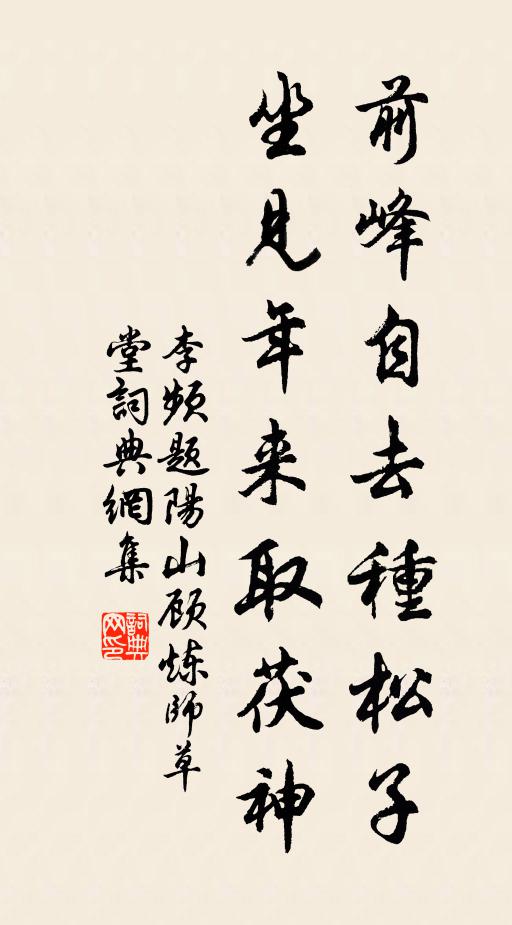 前峰自去種松子
坐見年来取茯神
李频题陽山顾炼師草
堂詞典網集
詞典网印